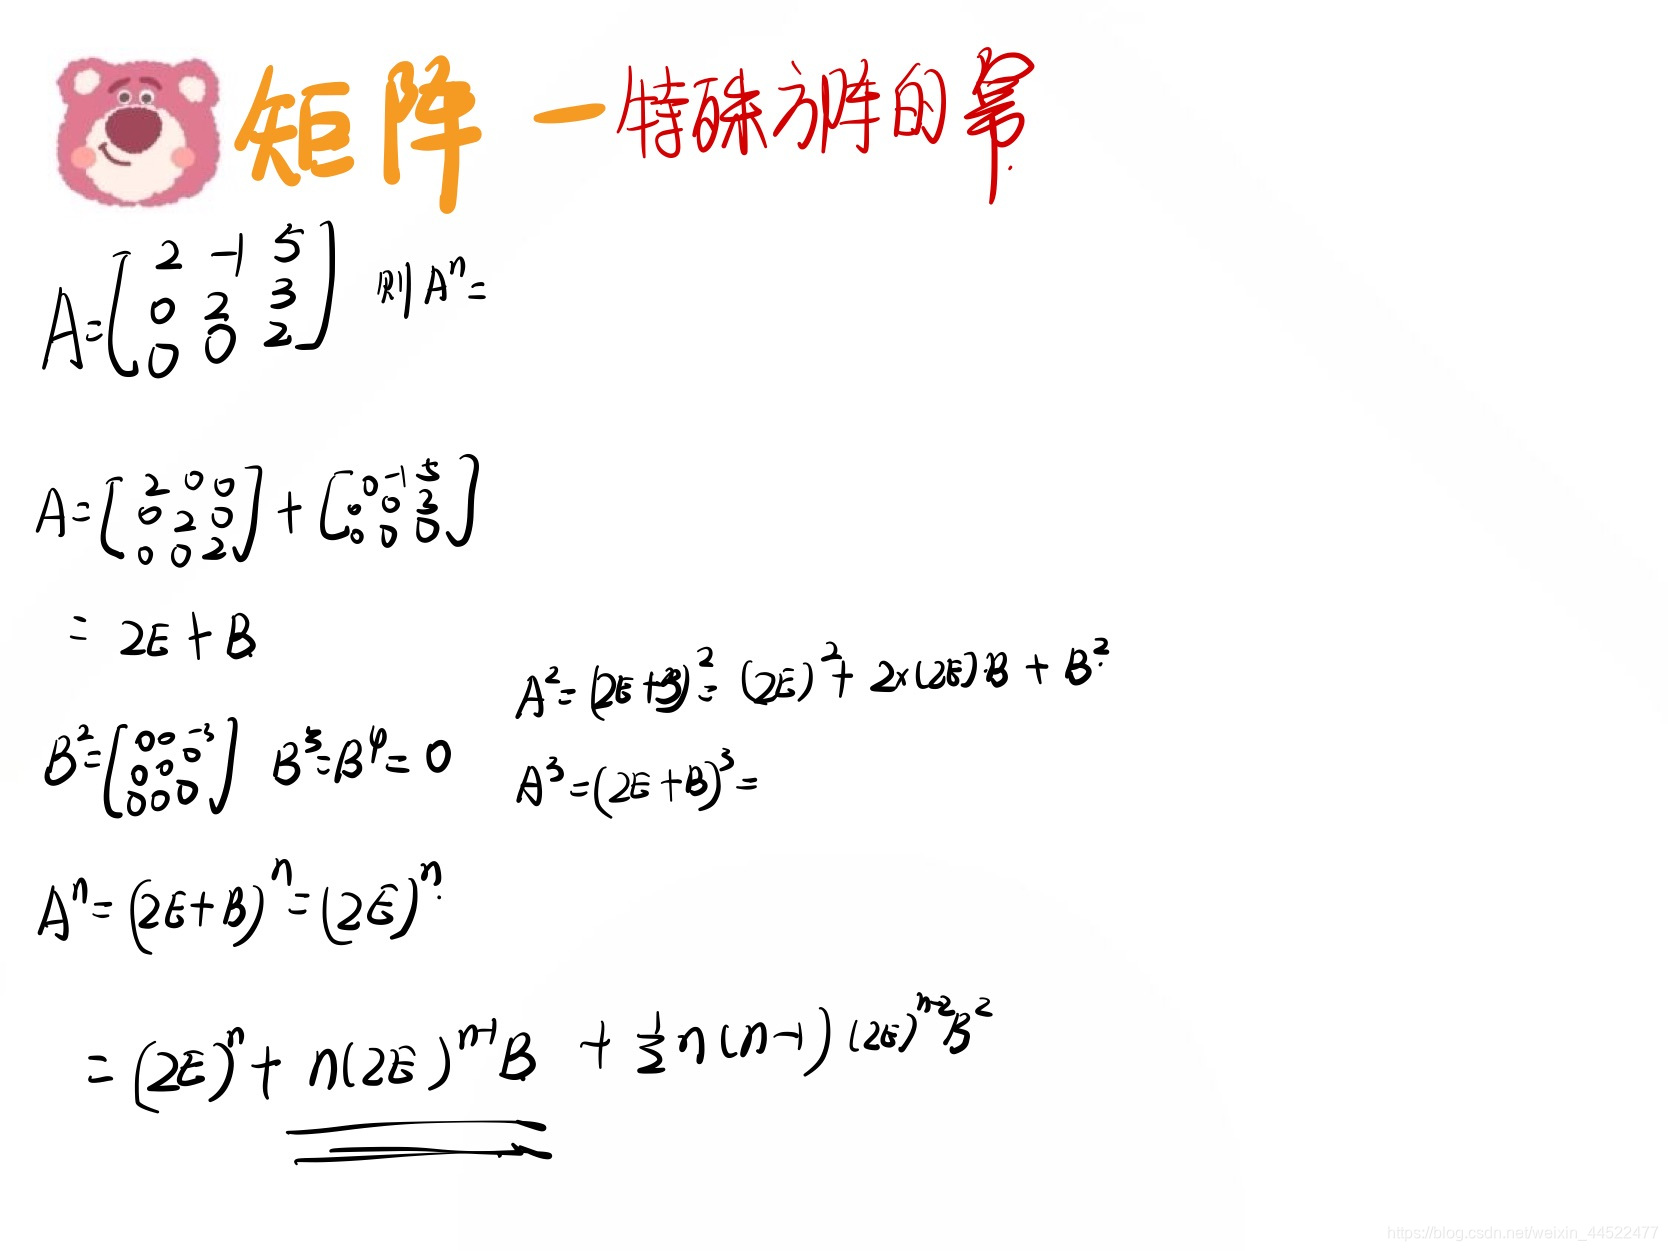 矩阵 - 特殊方阵的幂
A=[2 -1 5
0 2 3
0 0 2] 则 Aⁿ=
A=[2 0 0
0 2 0
0 0 2] + [0 -1 5
0 0 3
0 0 0]
= 2E + B
A²=(2E+B)²=(2E)²+2×(2E)·B+B²
B²=[0 0 -3
0 0 0
0 0 0] B³=B⁴=0
A³=(2E+B)³=
Aⁿ=(2E+B)ⁿ=(2E)ⁿ
=(2E)ⁿ+n(2E)ⁿ⁻¹B+½n(n-1)(2E)ⁿ⁻²B²
https://blog.csdn.net/weixin_44522477